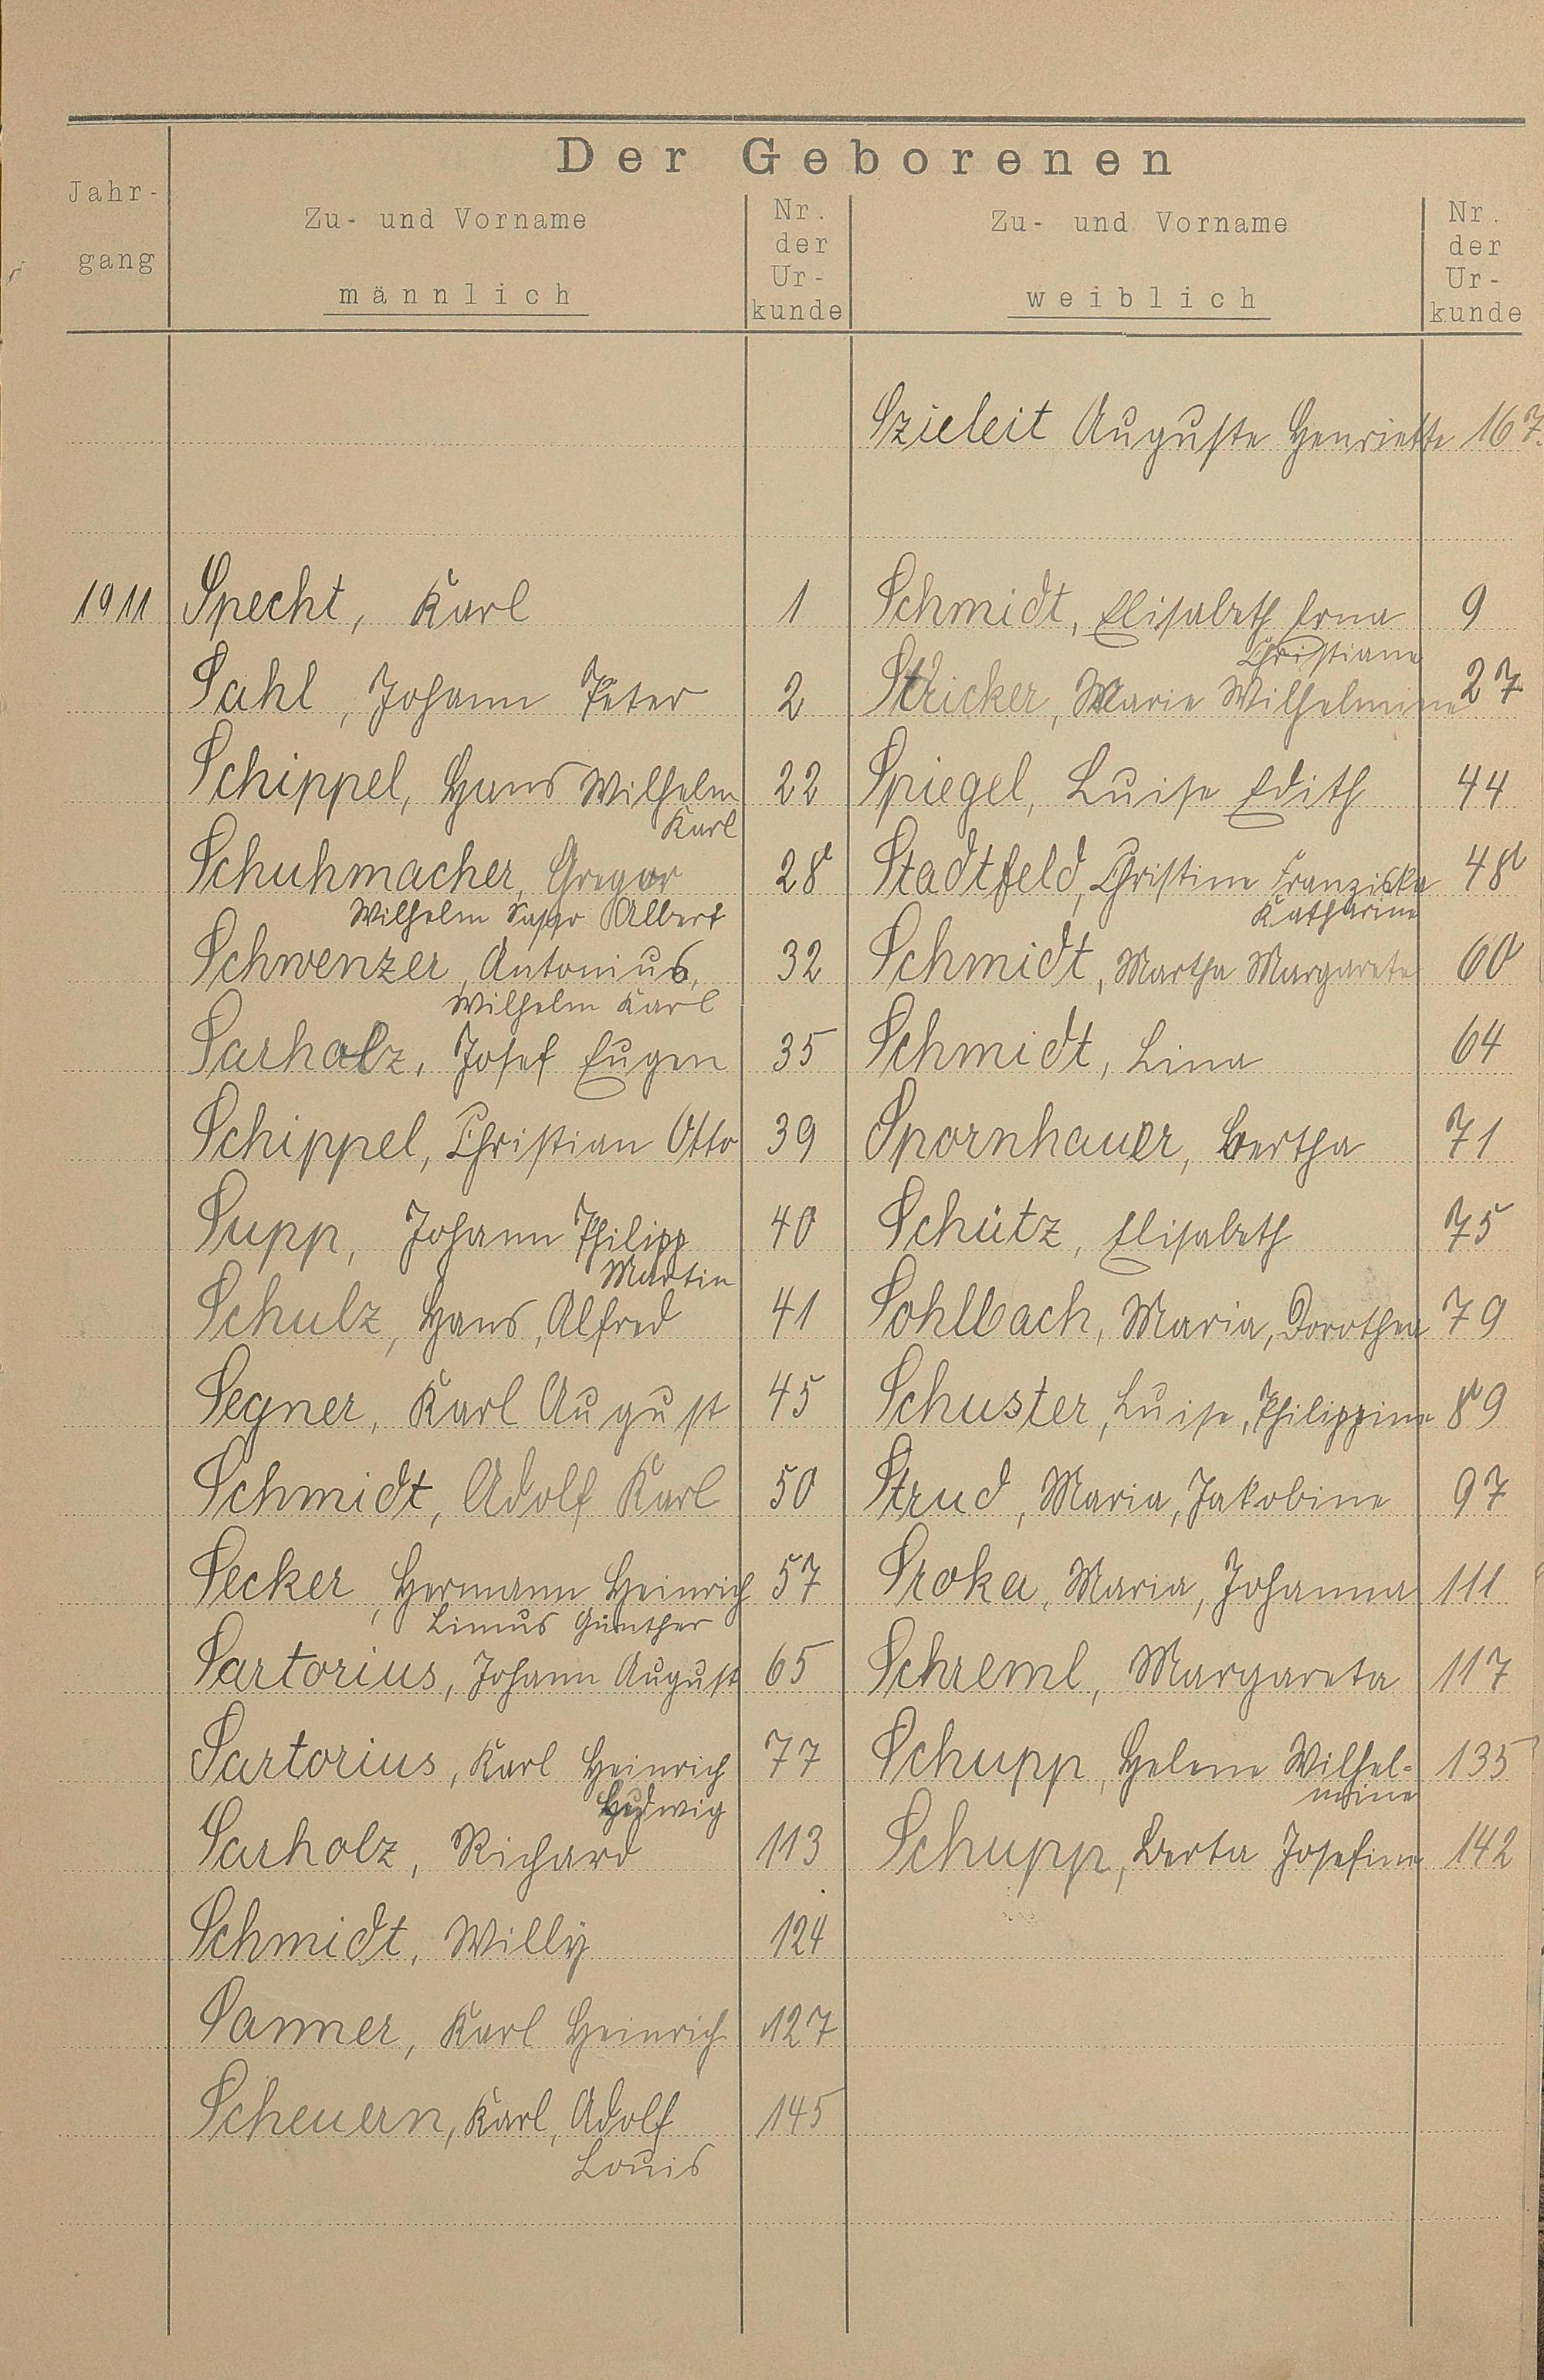 Der Geborenen
Jahr-
gang
Zu- und Vorname
männlich
Nr.
der
Ur-
kunde
Zu- und Vorname
weiblich
Nr.
der
Ur-
kunde
Szieleit Auguste Henriette 167.
1911 Specht, Karl 1 Schmidt, Elisabeth Erna 9
Christiane
Sahl, Johann Peter 2 Stricker, Marie Wilhelmine 27
Schippel, Hans Wilhelm 22 Spiegel, Luise Edith 44
Karl
Schuhmacher, Gregor 28 Stadtfeld, Christine Franziska 48
Wilhelm Albert Katharine
Schwenzer, Antonius, 32 Schmidt, Martha Margarete 60
Wilhelm Karl
Sarholz, Josef Eugen 35 Schmidt, Lina 64
Schippel, Christian Otto 39 Spornhauer, Bertha 71
Supp, Johann Philipp 40 Schütz, Elisabeth 75
Martin
Schulz, Hans, Alfred 41 Sohlbach, Maria, Dorothea 79
Segner, Karl August 45 Schuster, Luise, Philippine 89
Schmidt, Adolf Karl 50 Strud, Maria, Jakobine 97
Secker, Hermann Heinrich 57 Sroka, Maria, Johanna 111
Linus Günther
Sartorius, Johann August 65 Schreml, Margareta 117
Sartorius, Karl Heinrich 77 Schupp, Helene Wilhel-
135
mine
Sarholz, Richard 113 Schupp, Berta Josefine 142
Schmidt, Willy 124
Sanner, Karl Heinrich 127
Scheuern, Karl, Adolf 145
Louis